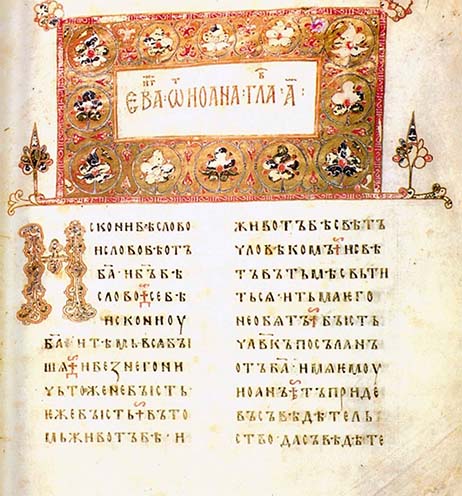 ЕВА · Ѿ ИОАНА · ГЛА · А҃ ·
ИСКОНИ БѢ СЛОВО
И СЛОВО БѢ ОТЪ
БА҃ И БЪ҃ БѢ
СЛОВО СЕ БѢ
ИСКОНИ ОУ
БА҃ И ТѢМЬ ВСѦ БЫ
ШѦ И БЕЗ НЕГО НИ
ЧЬТОЖЕ НЕ БЫСТЬ ·
ЕЖЕ БЫСТЬ ВЪ ТО
МЬ ЖИВОТЪ БѢ · И
ЖИВОТЪ БѢ СВѢТЪ
ЧЛОВѢКОМЪ И СВѢ
ТЪ ВЪ ТЬМѢ СВЬТИ
ТЬСѦ · И ТЬМА ѤГО
НЕ ОБѦТЪ БЫСТЬ
ЧЛ҃ВКЪ ПОСЪЛАНЪ
ОТЪ БА҃ · ИМѦ ѤМОУ
ИОАНЪ ТЪ ПРИДЕ
ВЪ СЪВѢДѢТЕЛЬ
СТВО · ДА СЪВѢДѢТЕ